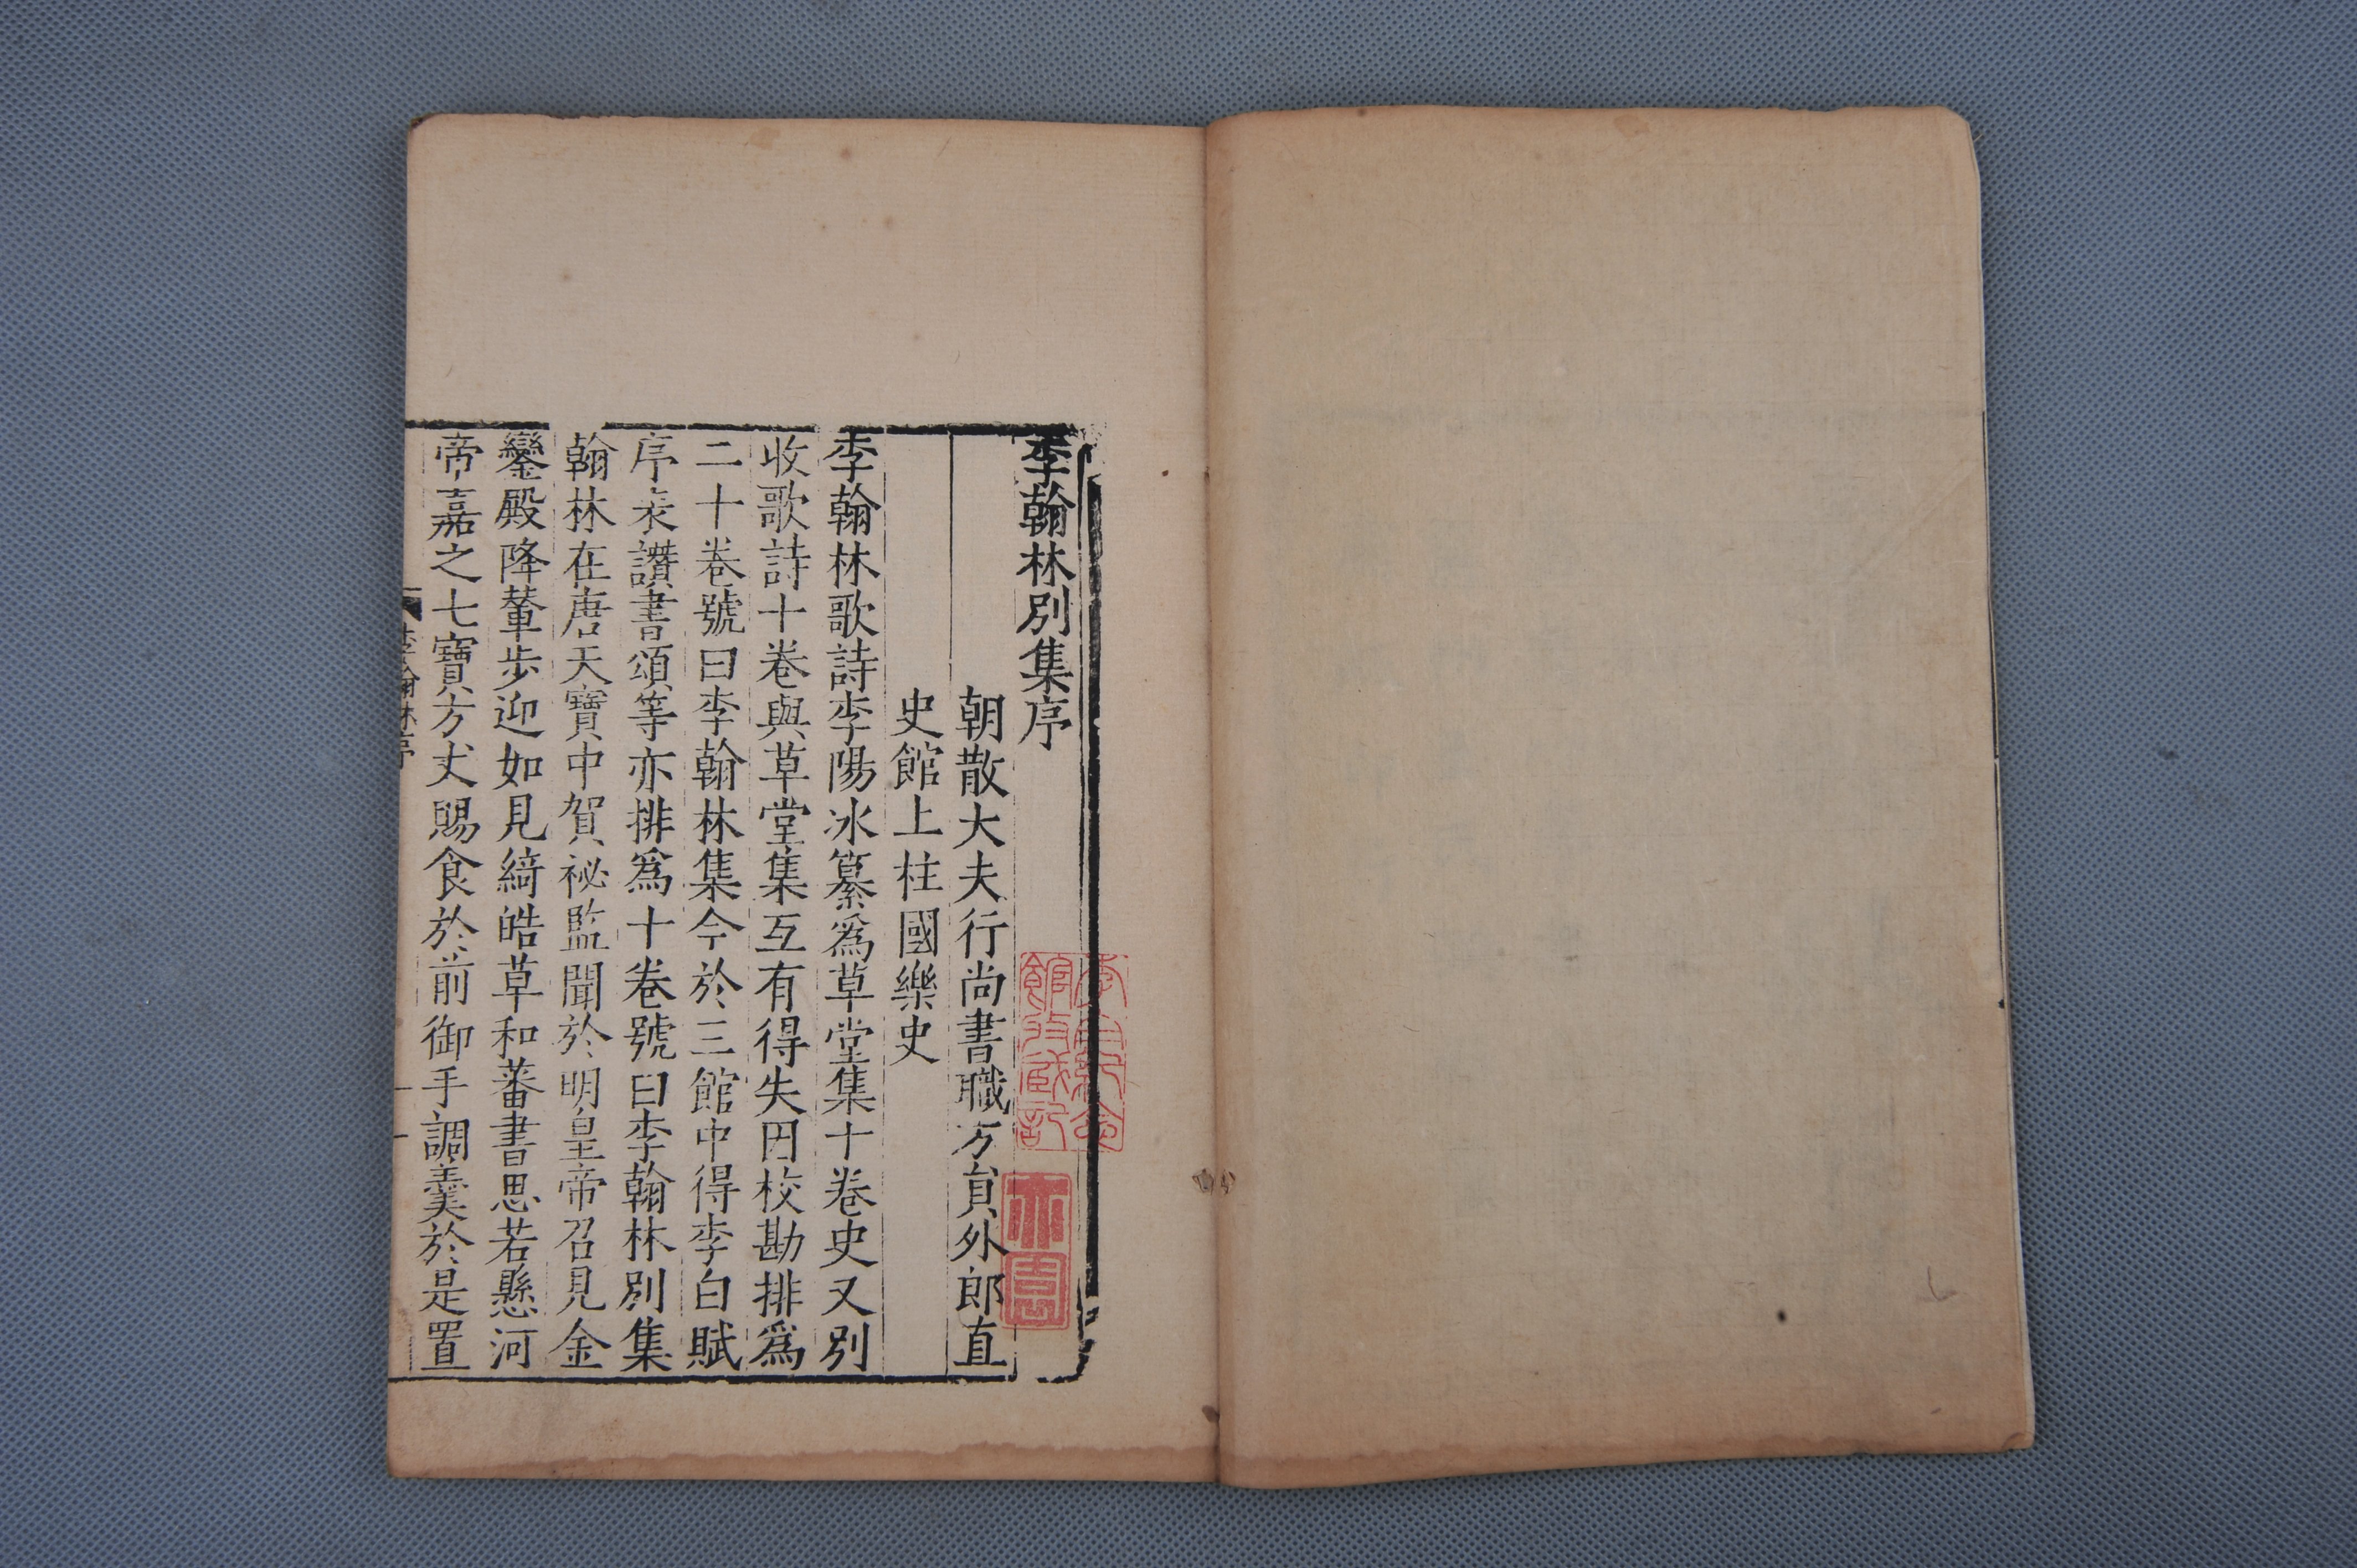 李翰林別集序
朝散大夫行尚書職方員外郎直
史館上柱國樂史
李翰林歌詩李陽冰纂爲草堂集十卷史又別
收歌詩十卷與草堂集互有得失因校勘排爲
二十卷號曰李翰林集今於三館中得李白賦
序表讚書頌等亦排爲十卷號曰李翰林別集
翰林在唐天寶中賀祕監聞於明皇帝召見金
鑾殿降輦步迎如見綺皓草和蕃書思若懸河
帝嘉之七寶方丈賜食於前御手調羹於是置
李翰林序